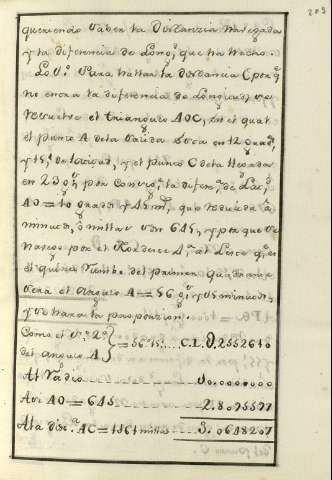 203
queriendo saver la Distanzia navegada
y la diferencia de Long.ᵈ que ha hecho.
Lo 1.º Para hallar la distancia C por q.ᵉ
no entra la diferencia de Longitud, se
resuelve el triangulo AOC, en el qual
el punto A de la salida toca en 12 grad.ˢ
y 15' de Latitud, y el punto C de la llegada
en 23 g.ˢ, por consig.ᵗᵉ la difer.ª de Lat.ᵈ
AO = 10 grados y 45 m.ˢ, que reducida á
minutos, ó millas son 645, y por que se
navegó por el Nordeste 4.ª al Leste q.ᵉ es
el quinto rumbo del primer quadrante
será el angulo A = 56 g.ˢ y 15 minutos,
y se hará la proporzion.
Como el S.º 2.º
del angulo A } = 56°15' C.L. 0,2552610
Al Radio 00.0000000
Asi AO = 645 2.8095597
A la dist.ª AC = 1161 millas 3.0648207